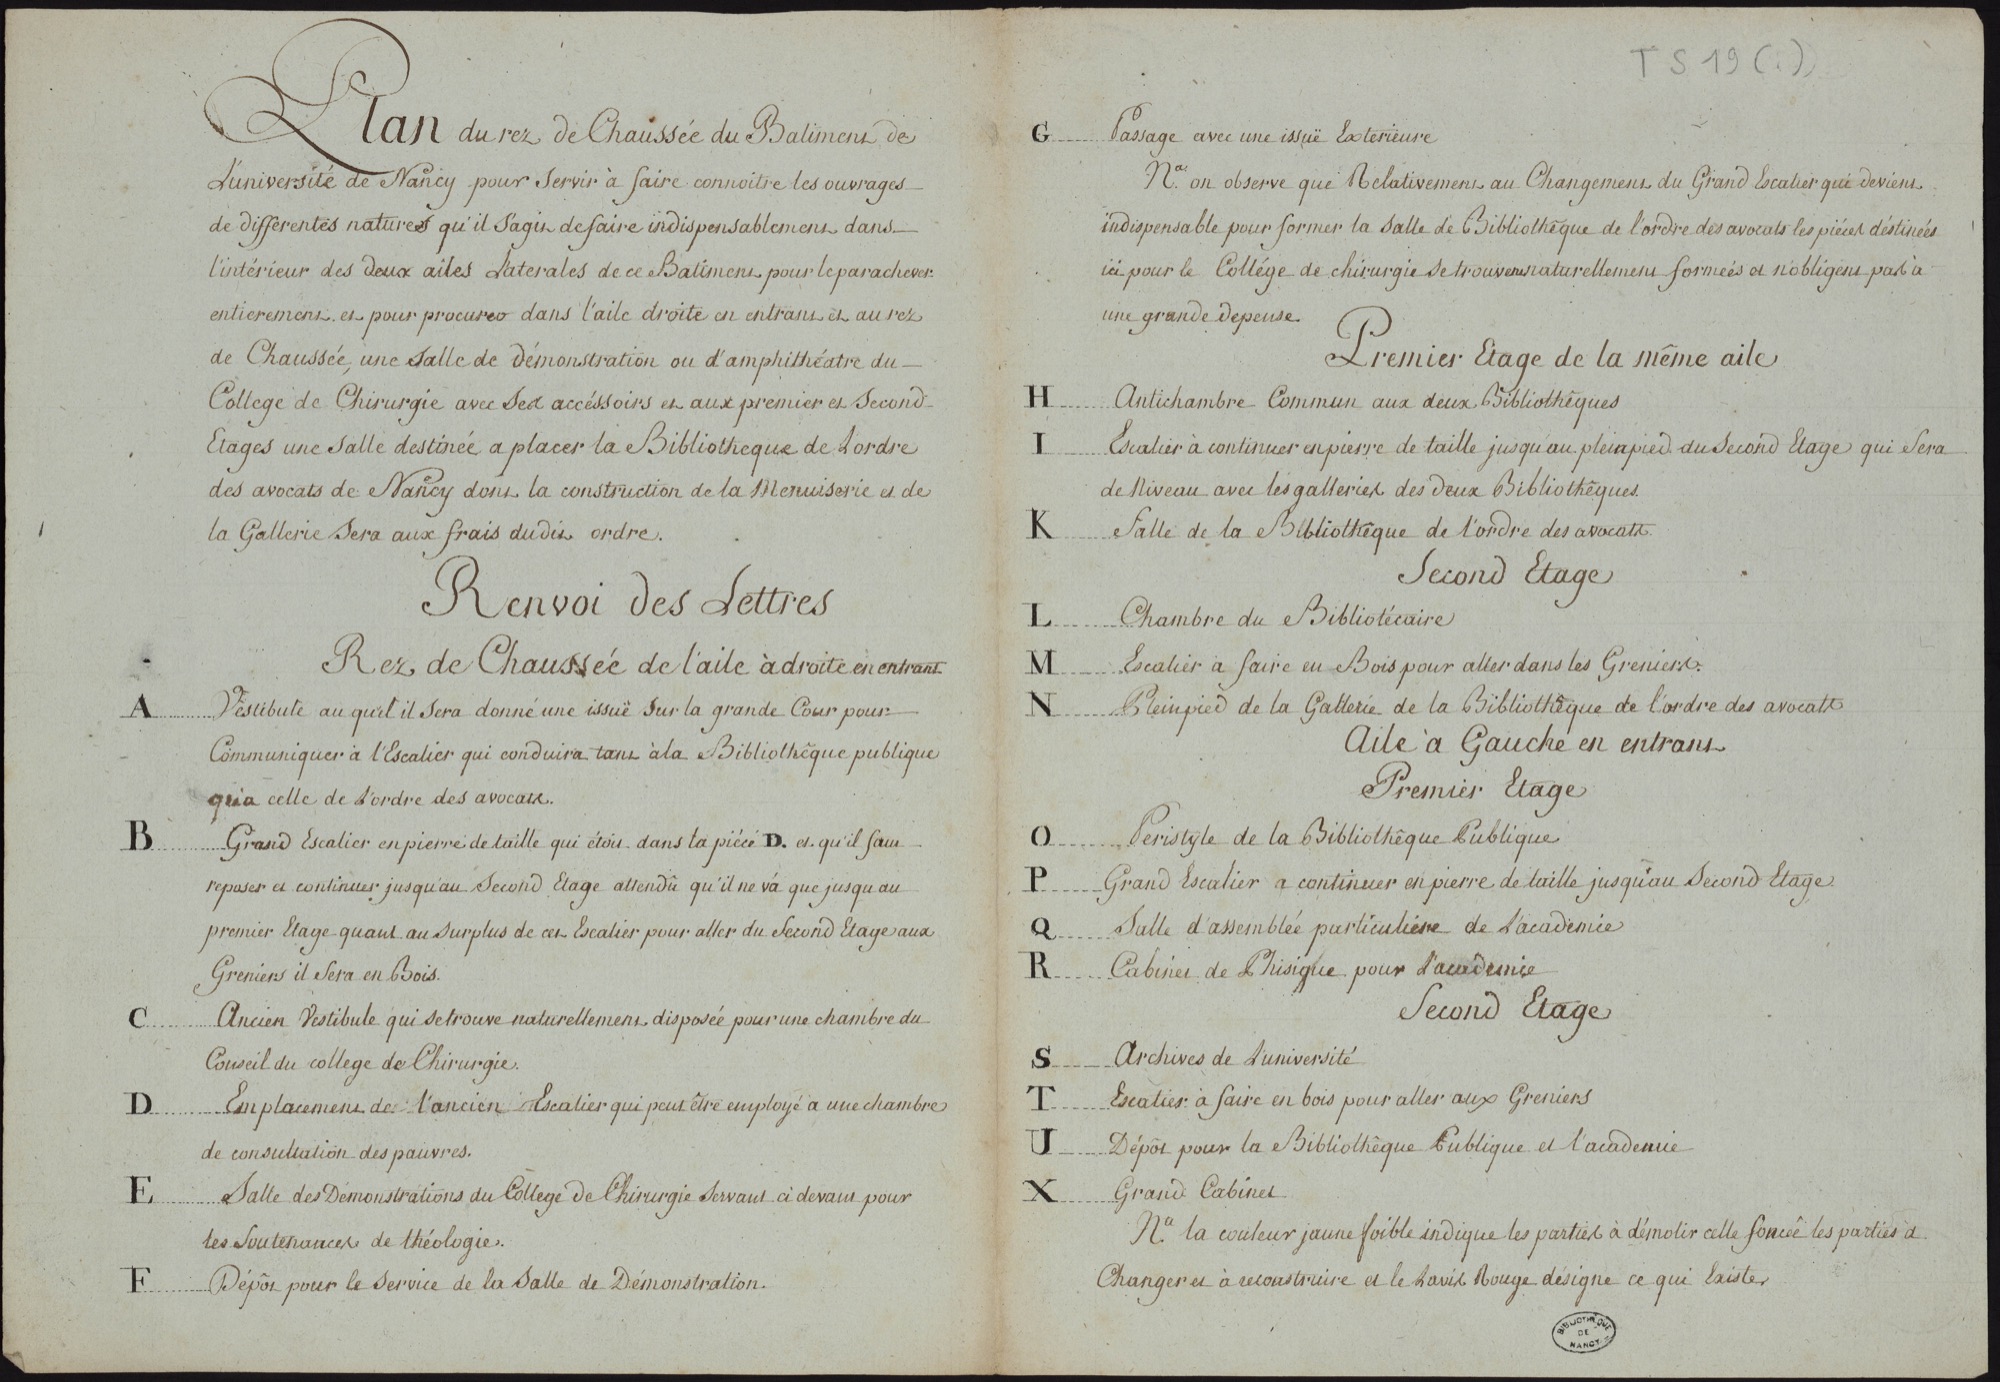 Plan du rez de Chaussée du Batiment de
L'université de Nancy pour Servir à faire connoitre les ouvrages
de différentes natures qu'il S'agit de faire indispensablement dans
l'intérieur des deux ailes Laterales de ce Batiment pour le parachever
entierement et pour procurer dans l'aile droite en entrant et au rez
de Chaussée, une Salle de démonstration ou d'amphithéatre du
College de Chirurgie avec Ses accéssoirs et aux premier et Second
Etages une Salle destinée a placer la Bibliotheque de L'ordre
des avocats de Nancy dont la construction de la Menuiserie et de
la Gallerie Sera aux frais dudit ordre.
Renvoi des Lettres
Rez de Chaussée de l'aile à droite en entrant
A Vestibule au quel il Sera donné une issuë Sur la grande Cour pour
Communiquer à l'Escalier qui conduira tant à la Bibliothêque publique
qu'a celle de L'ordre des avocats.
B Grand Escalier en pierre de taille qui étoit dans la piéce D. et qu'il faut
reposer et continuer jusqu'au Second Etage attendû qu'il ne vá que jusqu'au
premier Etage quant au Surplus de cet Escalier pour aller du Second Etage aux
Greniers il Sera en Bois.
C Ancien Vestibule qui se trouve naturellement disposée pour une chambre du
Conseil du college de Chirurgie.
D Emplacement de l'ancien Escalier qui peut être employé a une chambre
de consultation des pauvres.
E Salle des Démonstrations du College de Chirurgie Servant ci devant pour
les Soutenances de théologie.
F Dépôt pour le Service de la Salle de Démonstration.
TS 19 (1)
G Passage avec une issuë Exterieure
N.a on observe que Relativement au Changement du Grand Escalier qui devient
indispensable pour former la Salle de Bibliothêque de l'ordre des avocats les piéces déstinées
ici pour le Collége de chirurgie se trouvent naturellement formeés et n'obligent pas à
une grande depense.
Premier Etage de la même aile
H Antichambre Commun aux deux Bibliothêques
I Escalier à continuer en pierre de taille jusqu'au pleinpied du Second Etage qui Sera
de Niveau avec les galleries des deux Bibliothêques.
K Salle de la Bibliothêque de l'ordre des avocats
Second Etage
L Chambre du Bibliotécaire
M Escalier a faire en Bois pour aller dans les Greniers.
N Pleinpied de la Gallerie de la Bibliothêque de l'ordre des avocats
Aile à Gauche en entrant
Premier Etage
O Peristyle de la Bibliothêque Publique
P Grand Escalier a continuer en pierre de taille jusqu'au Second Etage
Q Salle d'assemblée particuliere de L'academie
R Cabinet de Phisique pour L'academie
Second Etage
S Archives de L'université
T Escalier à faire en bois pour aller aux Greniers
U Dépôt pour la Bibliothêque Publique et l'academie
X Grand Cabinet
N.a la couleur jaune foible indique les parties à démolir celle foncée les parties a
Changer et à reconstruire et le Lavis Rouge désigne ce qui Existe
BIBLIOTHEQUE
DE
NANCY